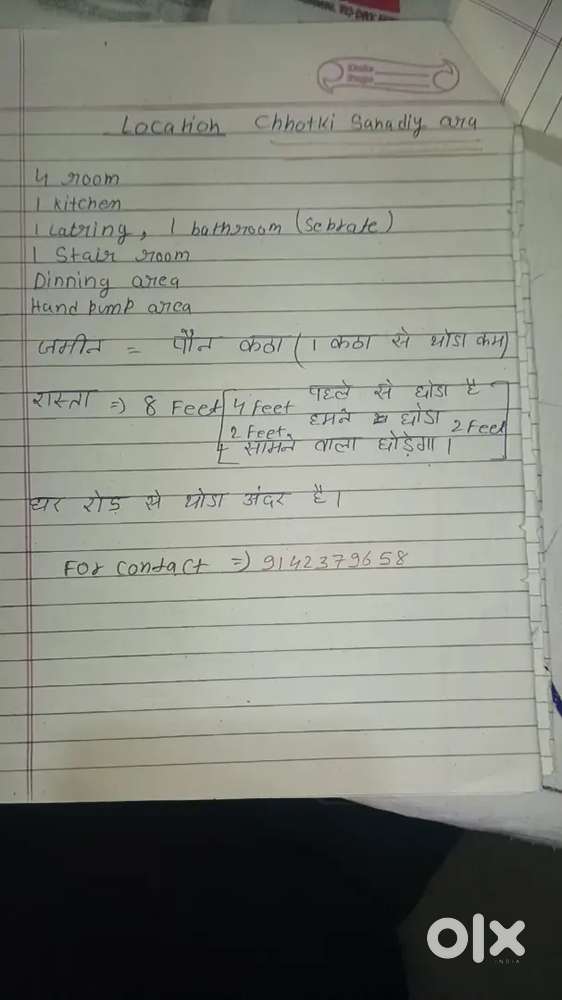 Location Chhotki Sanadiy ara
4 room
1 kitchen
1 Latring, 1 bathroom (Sebrate)
1 Stair room
Dinning area
Hand pump area
जमीन = पौन कठा (1 कठा से थोडा कम)
रास्ता => 8 Feet [4 Feet पहले से छोडा है
2 Feet हमने छोडा
सामने वाला छोड़ेगा। 2 Feet]
घर रोड़ से थोडा अंदर है।
For contact => 9142379658
olx
INDIA